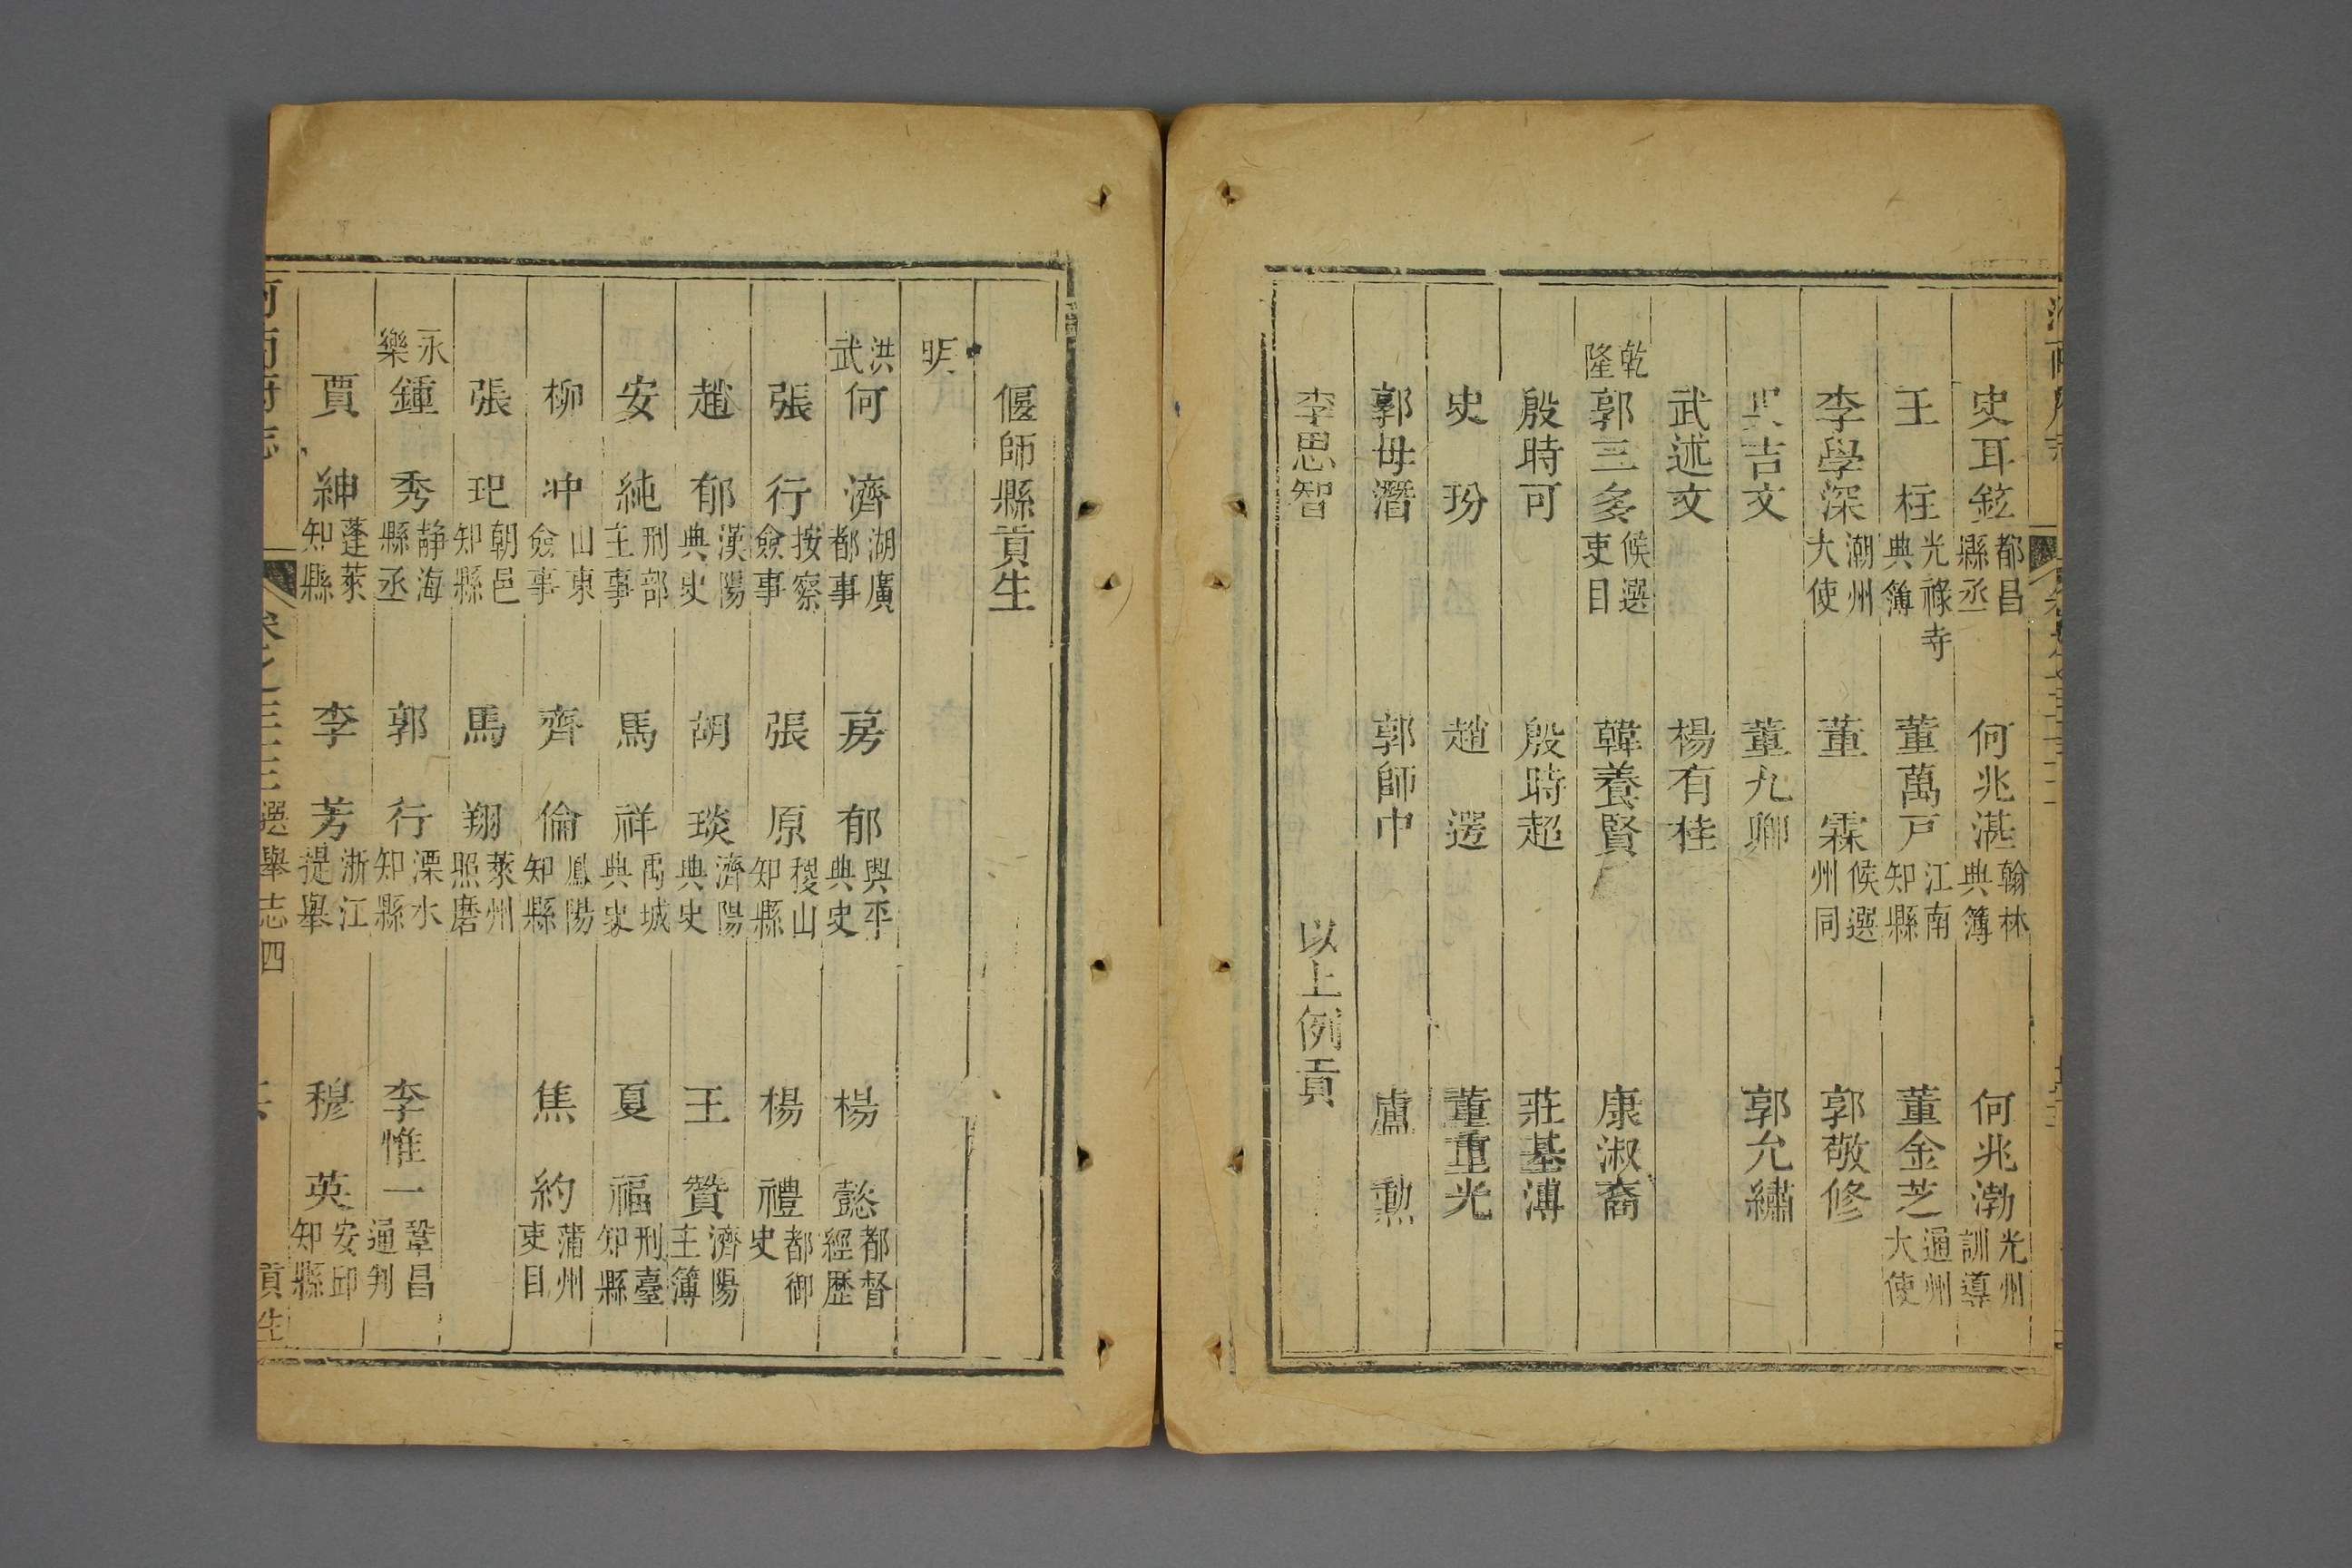 史耳鉉都昌縣丞 何兆湛翰林典簿 何兆渤光州訓導
王柱光祿寺典簿 董萬戸江南知縣 董金芝通州大使
李學深潮州大使 董霖候選州同 郭敬修
吉文 董九卿 郭允繡
武述文 楊有桂
乾隆郭三多候選吏目 韓養賢 康淑裔
殷時可 殷時超 莊基溥
史玢 趙選 董重光
郭毋潛 郭師中 盧勲
李思智 以上例貢
偃師縣貢生
明
洪武何濟湖廣都事 房郁興平典史 楊懿都督經歷
張行按察僉事 張原稷山知縣 楊禮都御史
趙郁漢陽典史 胡琰濟陽典史 王贊濟陽主簿
安純刑部主事 馬祥禹城典史 夏福刑臺知縣
柳冲山東僉事 齊倫鳳陽知縣 焦約蒲州吏目
張玘朝邑知縣 馬翔萊州照磨
永樂鍾秀靜海縣丞 郭行溧水知縣 李惟一鞏昌通判
賈紳蓬萊知縣 李芳浙江提舉 穆英安邱知縣
選舉志四 貢生